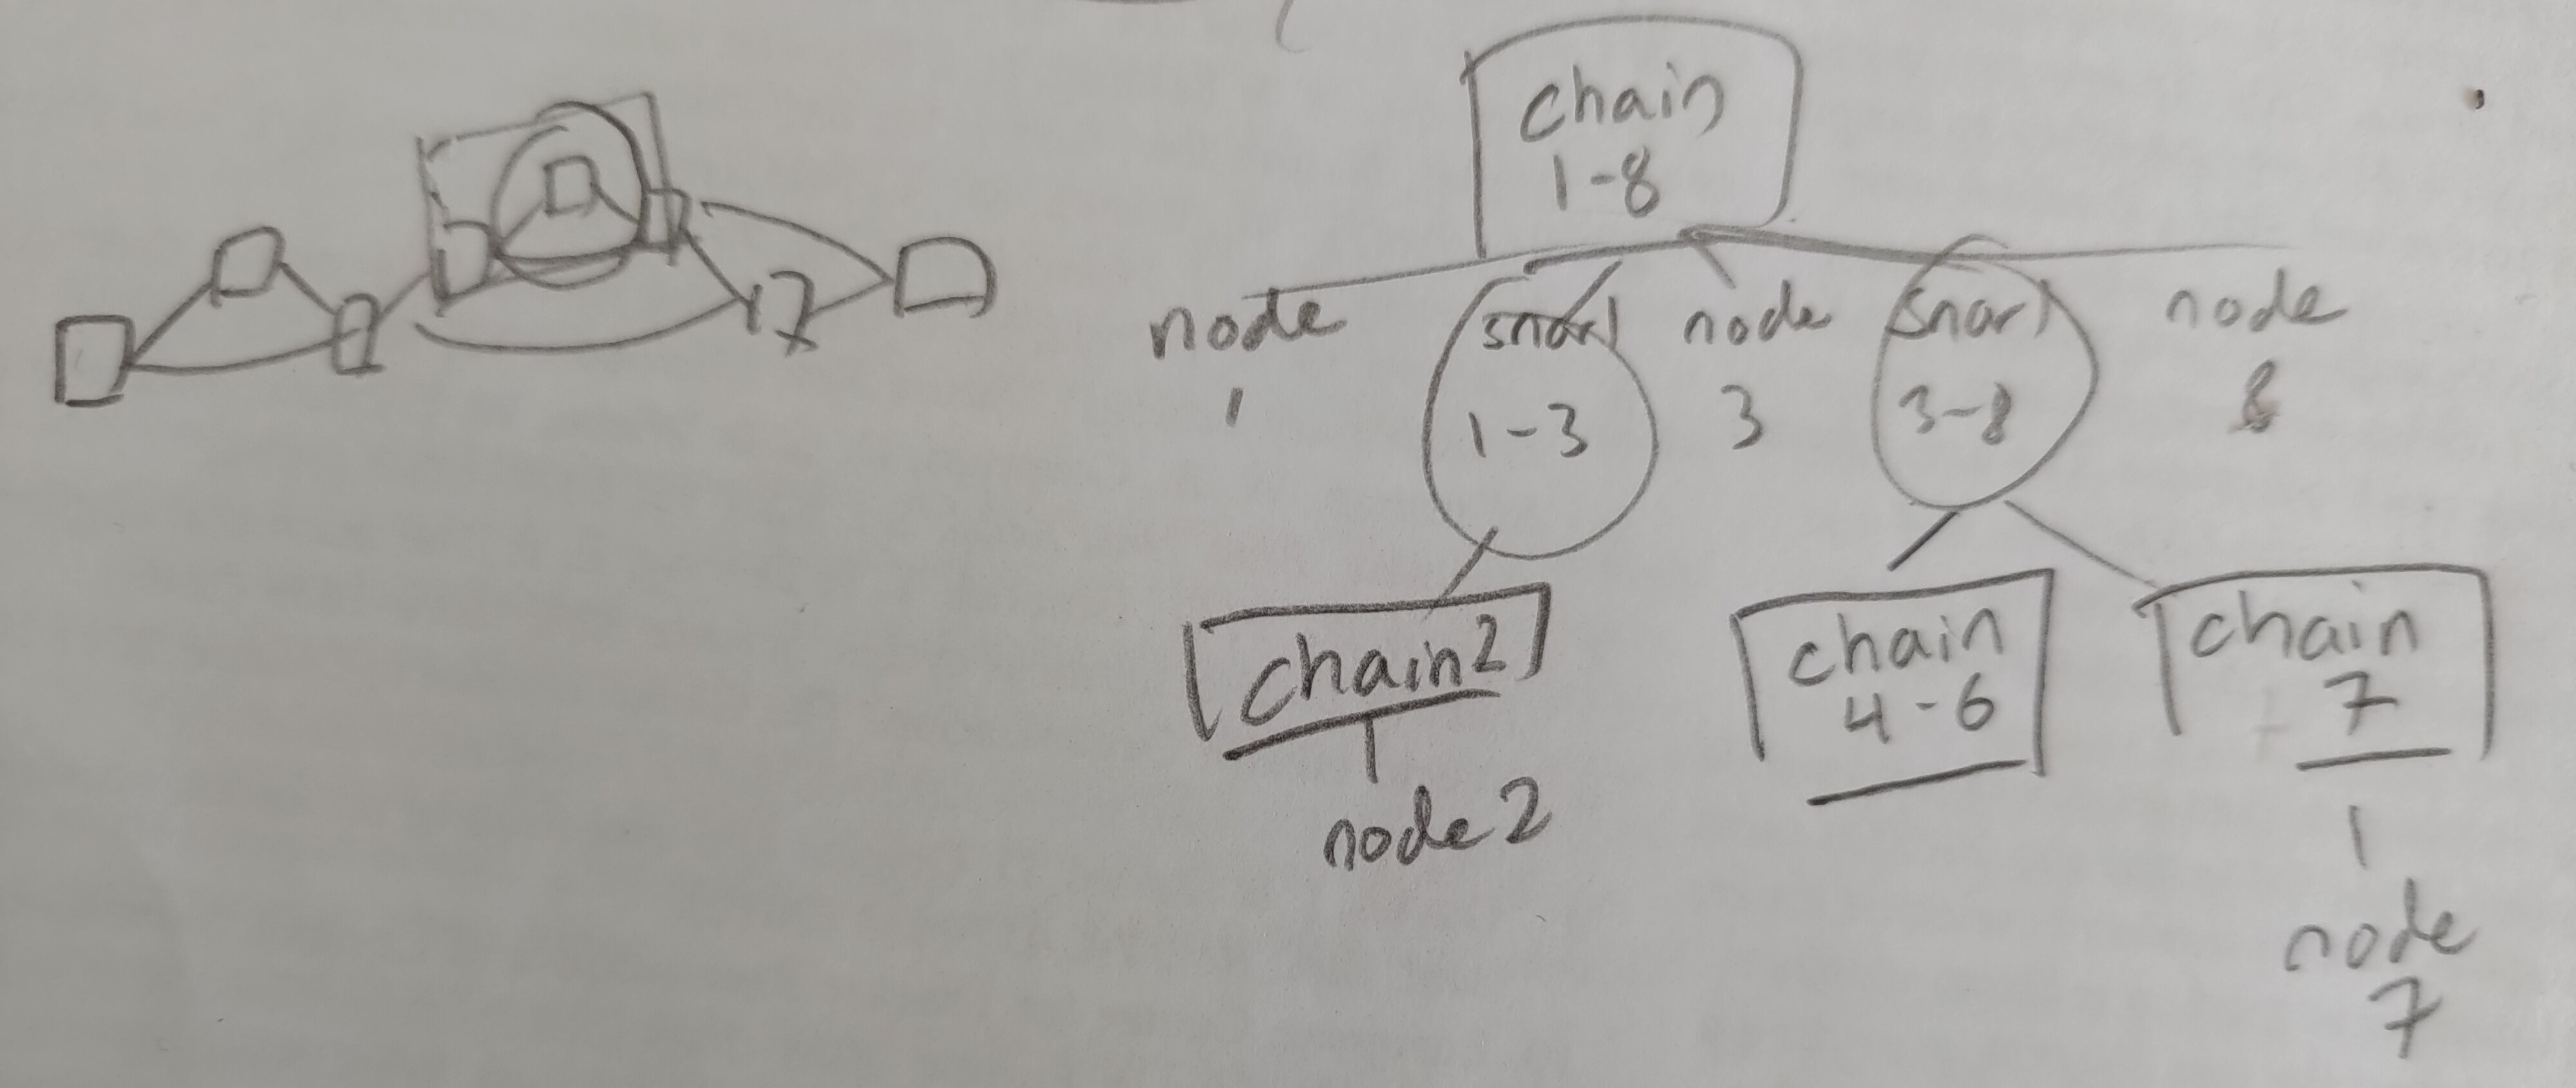 chain
1-8
node
1
snarl
1-3
node
3
snarl
3-8
node
8
chain 2
node 2
chain
4-6
chain
7
node
7
7